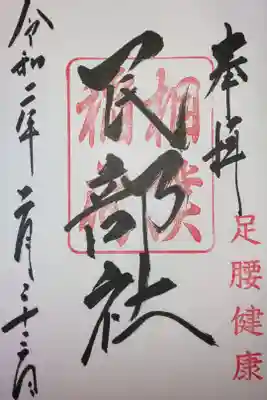 奉拝
足腰健康
相撲
稲荷
民部社
令和二年二月二十三日